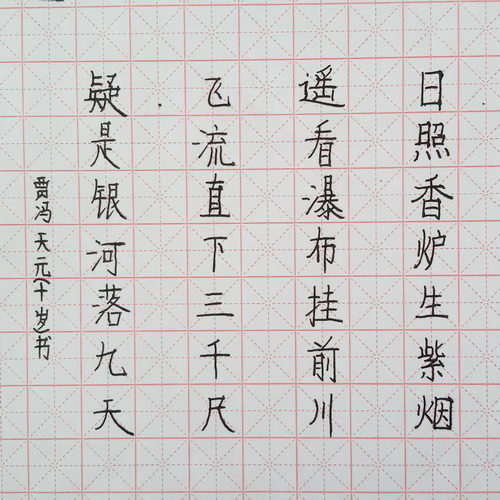 日照香炉生紫烟
遥看瀑布挂前川
飞流直下三千尺
疑是银河落九天
贾冯天元(十岁)书